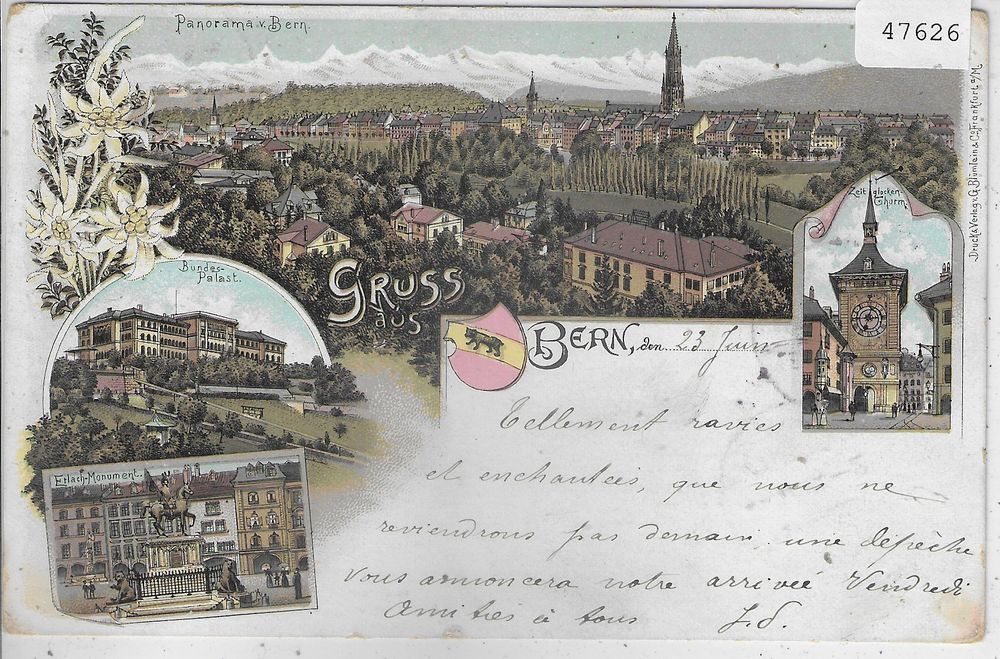 47626
Panorama v. Bern.
Zeitglocken-
Thurm.
Druck & Verlag v. G. Blümlein & Co. Frankfurt a/M.
Bundes-
Palast.
GRUSS
aus
BERN, den 23 Juin
Tellement ravies
et enchantées, que nous ne
reviendrons pas demain, une depêche
vous annoncera notre arrivée Vendredi
Amitiés à tous J.S.
Erlach-Monument.